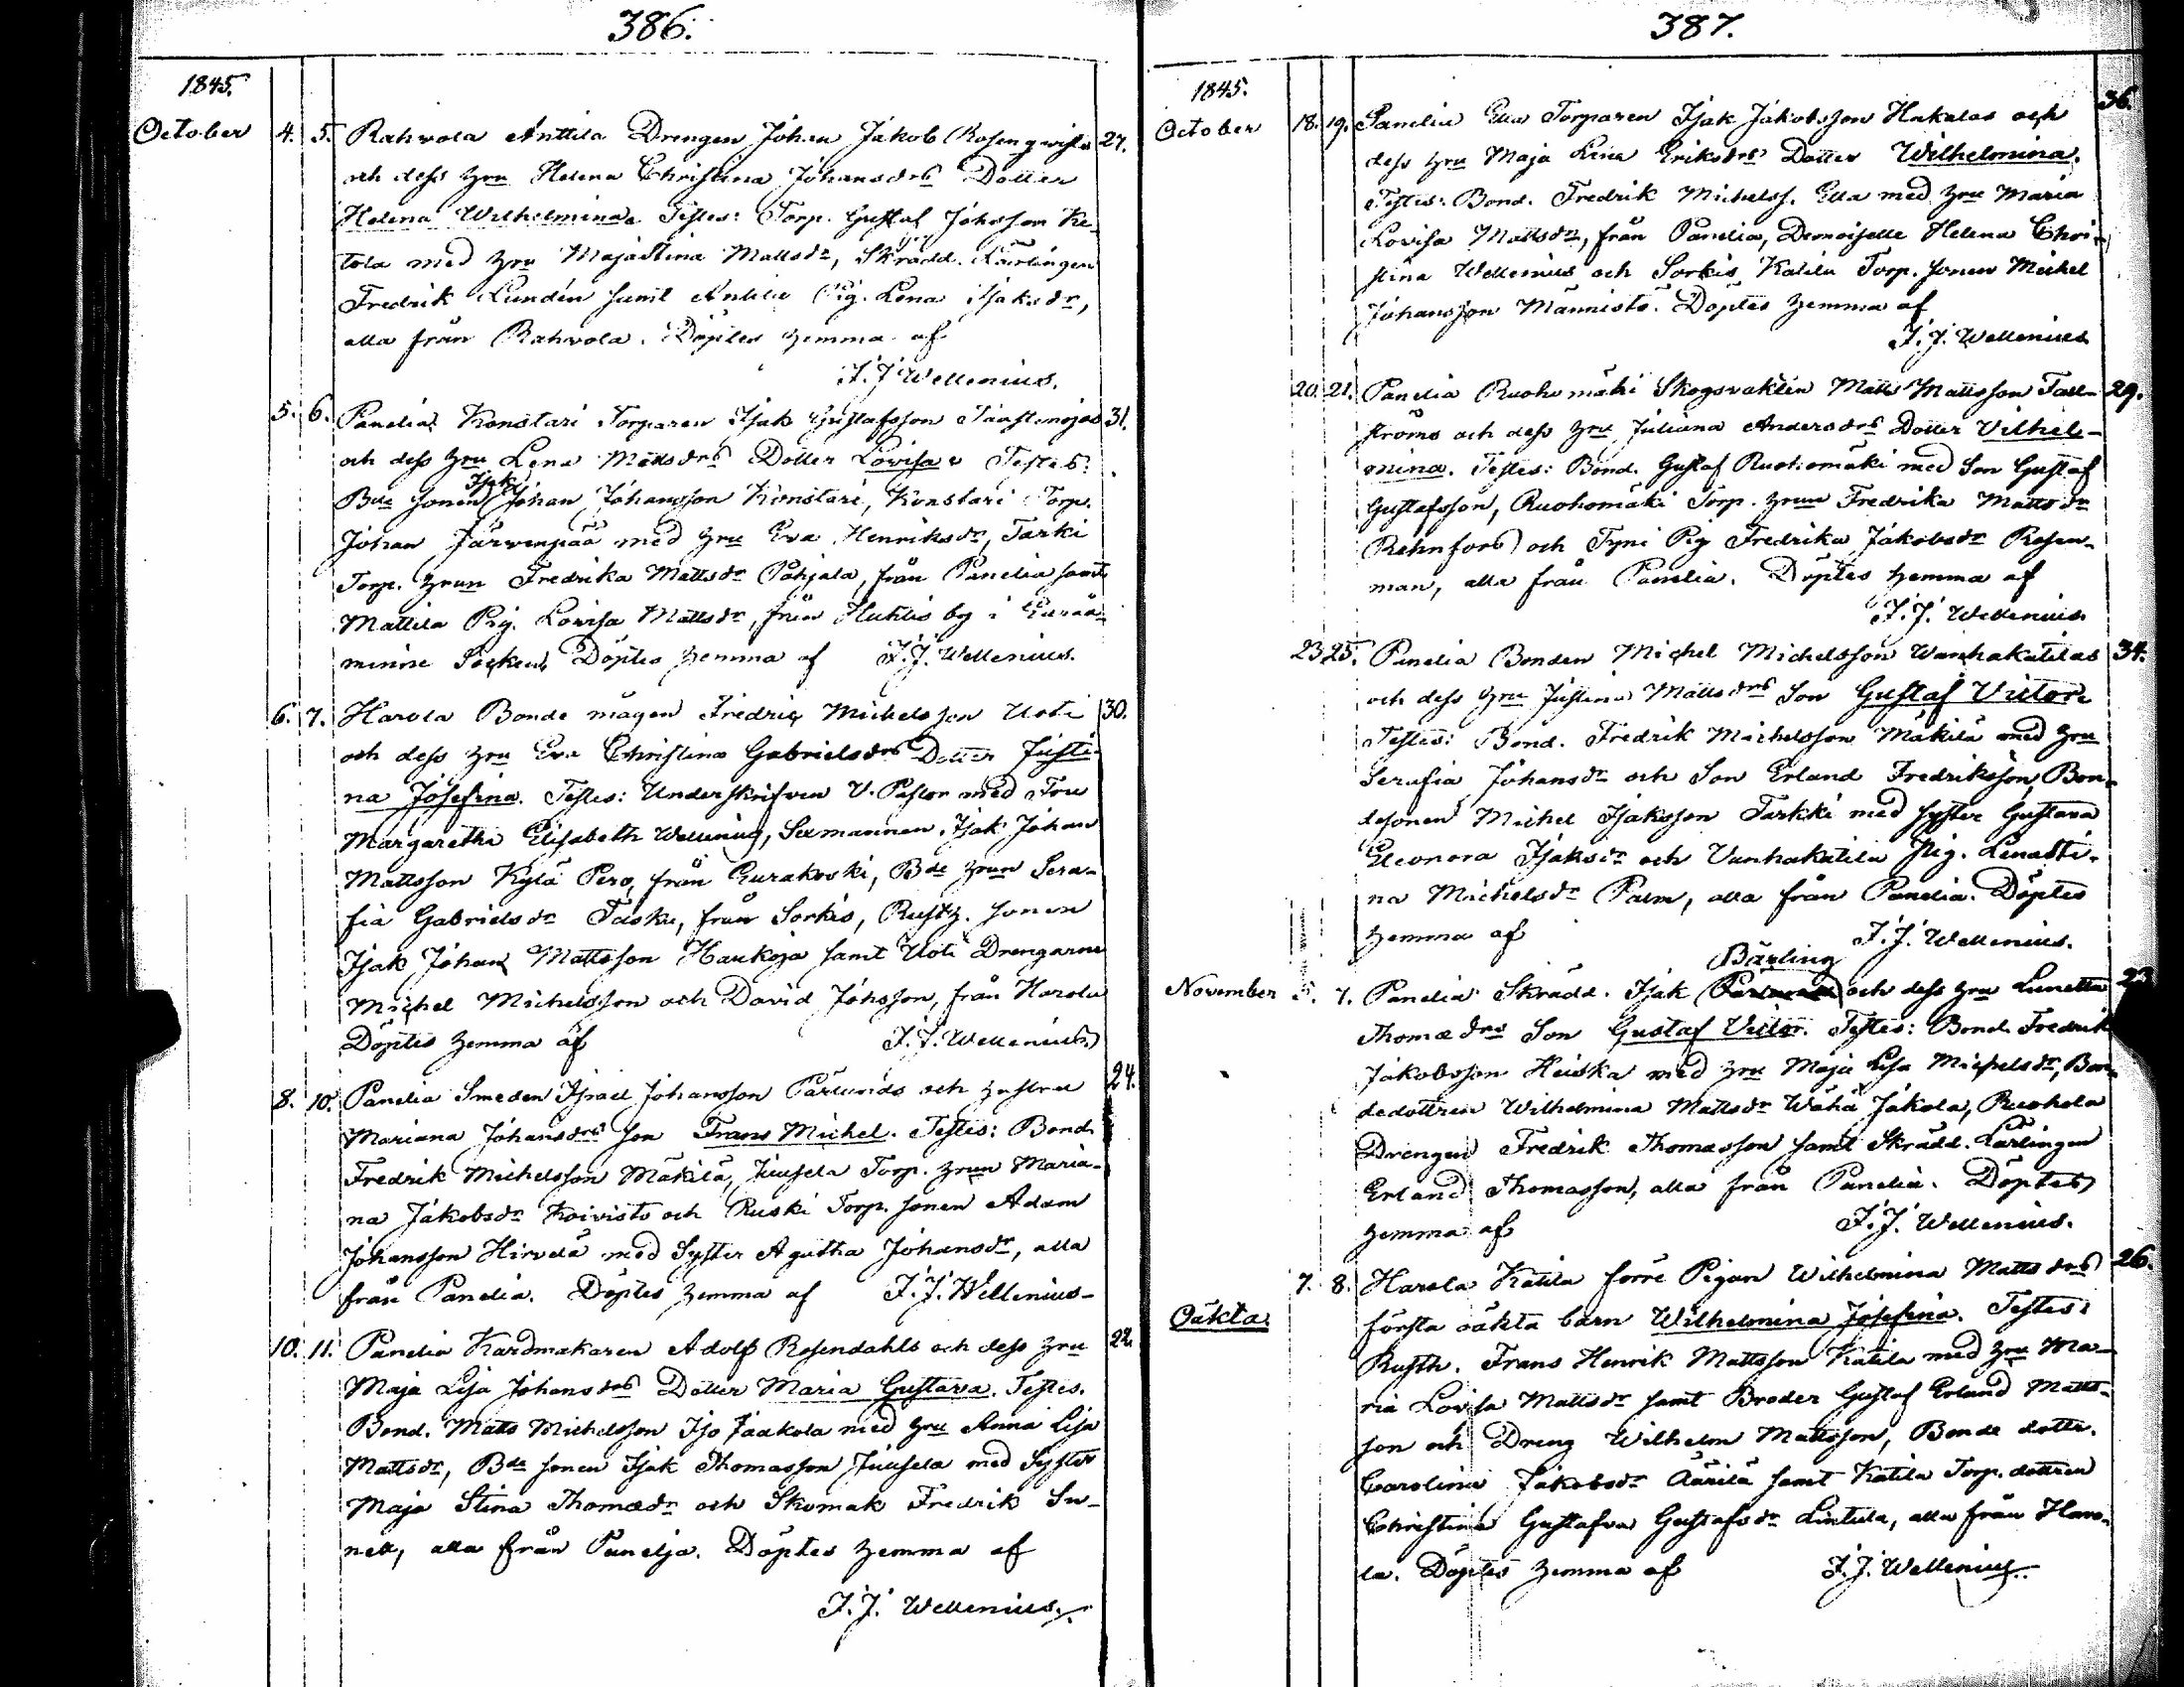 386.
1845.
October 4. 5. Rahvola Anttila Drengen Johan Jakob Rosenqvists 27.
och dess hru Helena Christina Johansdrs Dotter
Helena Wilhelmina. Testes: Torp. Gustaf Johsson Ke-
tola med hru Majastina Mattsdr, Skrädd. Lärlingen
Fredrik Lundén samt Anttila Pig. Lena Isaksdr,
alla från Rahvola. Döptes hemma af
F. J. Wellenius.
5. 6. Panelia Konstari Torparen Isak Gustafsson 31.
och dess hru Lena Mattsdrs Dotter Lovisa. Testes:
Isak
Bde sonen Johan Johansson Konstari, Konstari Torp.
Johan Järvenpää med hru Eva Henriksdr, Tarki
Torp. hrun Fredrika Mattsdr Påhjala, från Panelia samt
Mattila Pig. Lovisa Mattsdr, från Huhtis by i Euraå-
minne Socken, Döptes hemma af F. J. Wellenius.
6. 7. Harola Bonde mågen Fredric Michelsson Uoti 30.
och dess hru Eva Christina Gabrielsdrs Dotter Justi-
na Josefina. Testes: Underskrifven V. Pastor med Fru
Margaretha Elisabeth Wellenius, Sexmannen Isak Johan
Mattsson Kylä Pero, från Eurakoski, Bde hrun Sera-
fia Gabrielsdr Tasku, från Sorkis, Rusth. sonen
Isak Johan Mattsson Haukoja samt Uoti Drengarne
Michel Michelsson och David Johsson, från Harola
Döptes hemma af F. J. Wellenius
8. 10. Panelia Smeden Israel Johansson Pärlunds och hustru 24.
Mariana Johansdrs Son Frans Michel. Testes: Bond.
Fredrik Michelsson Mäkilä, Juusela Torp. hrun Maria-
na Jakobsdr Koivisto och Ruski Torp. sonen Adam
Johansson Hirvelä med Syster Agatha Johansdr, alla
från Panelia. Döptes hemma af F. J. Wellenius.
10. 11. Panelia Kardmakaren Adolf Rosendahls och dess hru 22.
Maja Lisa Johansdrs Dotter Maria Gustava. Testes.
Bond. Matts Michelsson Iso Jaakola med hru Anna Lisa
Mattsdr, Bde sonen Isak Thomasson Juusela med Syster
Maja Stina Thomaedr och Skomak Fredrik Su-
nell, alla från Panelja. Döptes hemma af
F. J. Wellenius.
387.
1845.
October 18. 19. Panelia Ella Torparen Isak Jakobsson Hakalas och 36.
dess hru Maja Lena Eriksdrs Dotter Wilhelmina.
Testes: Bond. Fredrik Michelss. Ella med hru Maria
Lovisa Mattsdr, från Panelia, Demoiselle Helena Chri-
stina Wellenius och Sorkis Katila Torp. sonen Michel
Johansson Männistö. Döptes hemma af
F. J. Wellenius
20. 21. Panelia Ruohomäki Skogsvakten Matts Mattsson Tall- 29.
ströms och dess hru Juliana Andersdrs Dotter Vilhel-
mina. Testes: Bond. Gustaf Ruohomäki med Son Gustaf
Gustafsson, Ruohomäki Torp. hrun Fredrika Mattsdr
Rehnfors och Tyni Pig Fredrika Jakobsdr Rosen-
man, alla från Panelia. Döptes hemma af
F. J. Wellenius
23 25. Panelia Bonden Michel Michelsson Wanhakatilas 34.
och dess hru Justina Mattsdrs Son Gustaf Victor.
Testes: Bond. Fredrik Michelsson Mäkilä med hru
Serafia Johansdr och Son Erland Fredriksson, Bon-
desonen Michel Isaksson Tarkki med syster Gustava
Eleonora Isaksdr och Vanhakatila Pig. Lenasti-
na Michelsdr Palm, alla från Panelia. Döptes
hemma af F. J. Wellenius.
Bärling
November 5. 7. Panelia Skrädd. Isak och dess hru Lunetta 23
Thomaedrs Son Gustaf Victor. Testes: Bond. Fredrik
Jakobsson Heiska med hru Maja Lisa Michelsdr, Bon-
dedottren Wilhelmina Mattsdr Wähä Jakola, Ruohola
Drengen Fredrik Thomasson samt Skrädd. Lärlingen
Erland Thomasson, alla från Panelia. Döptes
hemma af F. J. Wellenius.
7. 8. Harola Katila förre Pigan Wilhelmina Mattsdrs 26.
Oäkta. första oäkta barn Wilhelmina Josefina. Testes:
Rusth. Frans Henrik Mattsson Katila med hru Ma-
ria Lovisa Mattsdr samt Broder Gustaf Erland Matts-
son och Dreng Wilhelm Mattsson, Bonde dottr.
Carolina Jakobsdr Äärilä samt Katila Torp. dottren
Christina Gustafva Gustafsdr Lintula, alla från Haro-
la. Döptes hemma af F. J. Wellenius.